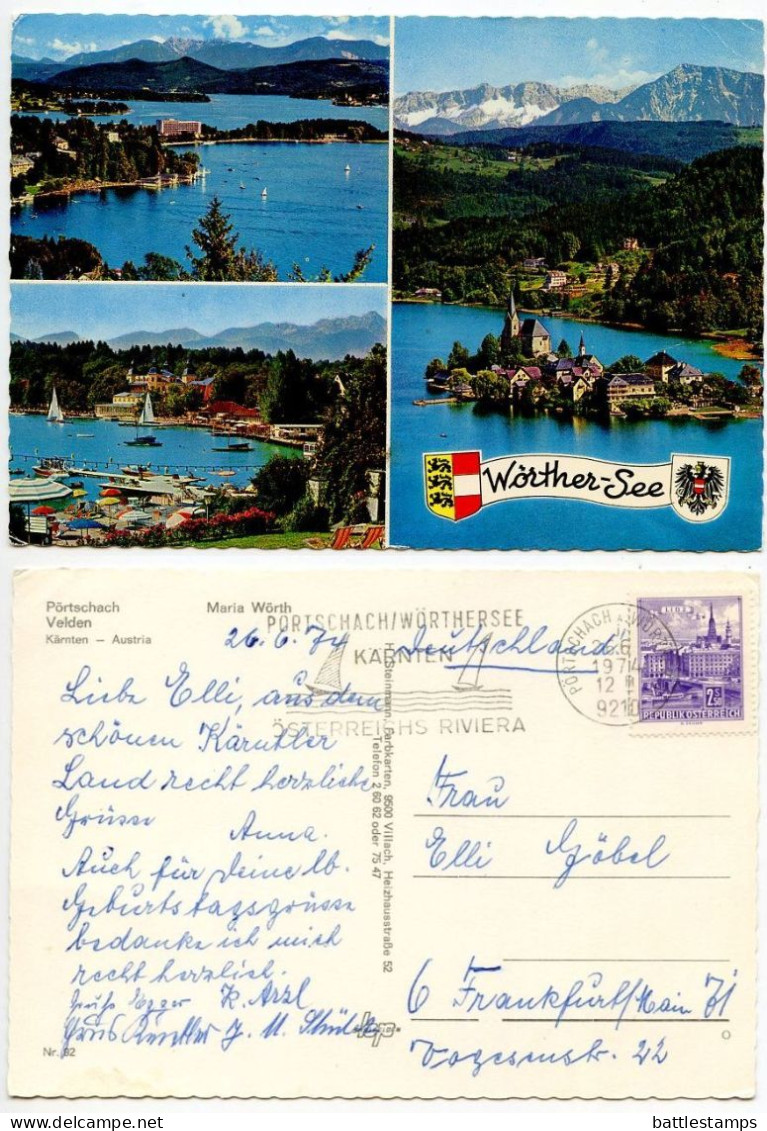 Wörther-See
Pörtschach
Velden
Kärnten – Austria
Maria Wörth
PÖRTSCHACH/WÖRTHERSEE
KÄRNTEN
ÖSTERREICHS RIVIERA
PÖRTSCHACH
1974
12
9210
LINZ
2.S
REPUBLIK ÖSTERREICH
26.6.74
Deutschland
Liebe Elli, aus dem
schönen Kärntler
Land recht herzliche
Grüsse Anna.
Auch für Deine lb.
Geburtstagsgrüsse
bedanke ich mich
recht herzlich.
Gruß Egger K. Arzl
Nr. 92
H. Steinmann, Farbkarten, 9500 Villach, Heizhausstraße 52
Telefon 2 60 62 oder 75 47
Frau
Elli Göbel
6 Frankfurt/Main 71
Vogesenstr. 22
battlestamps